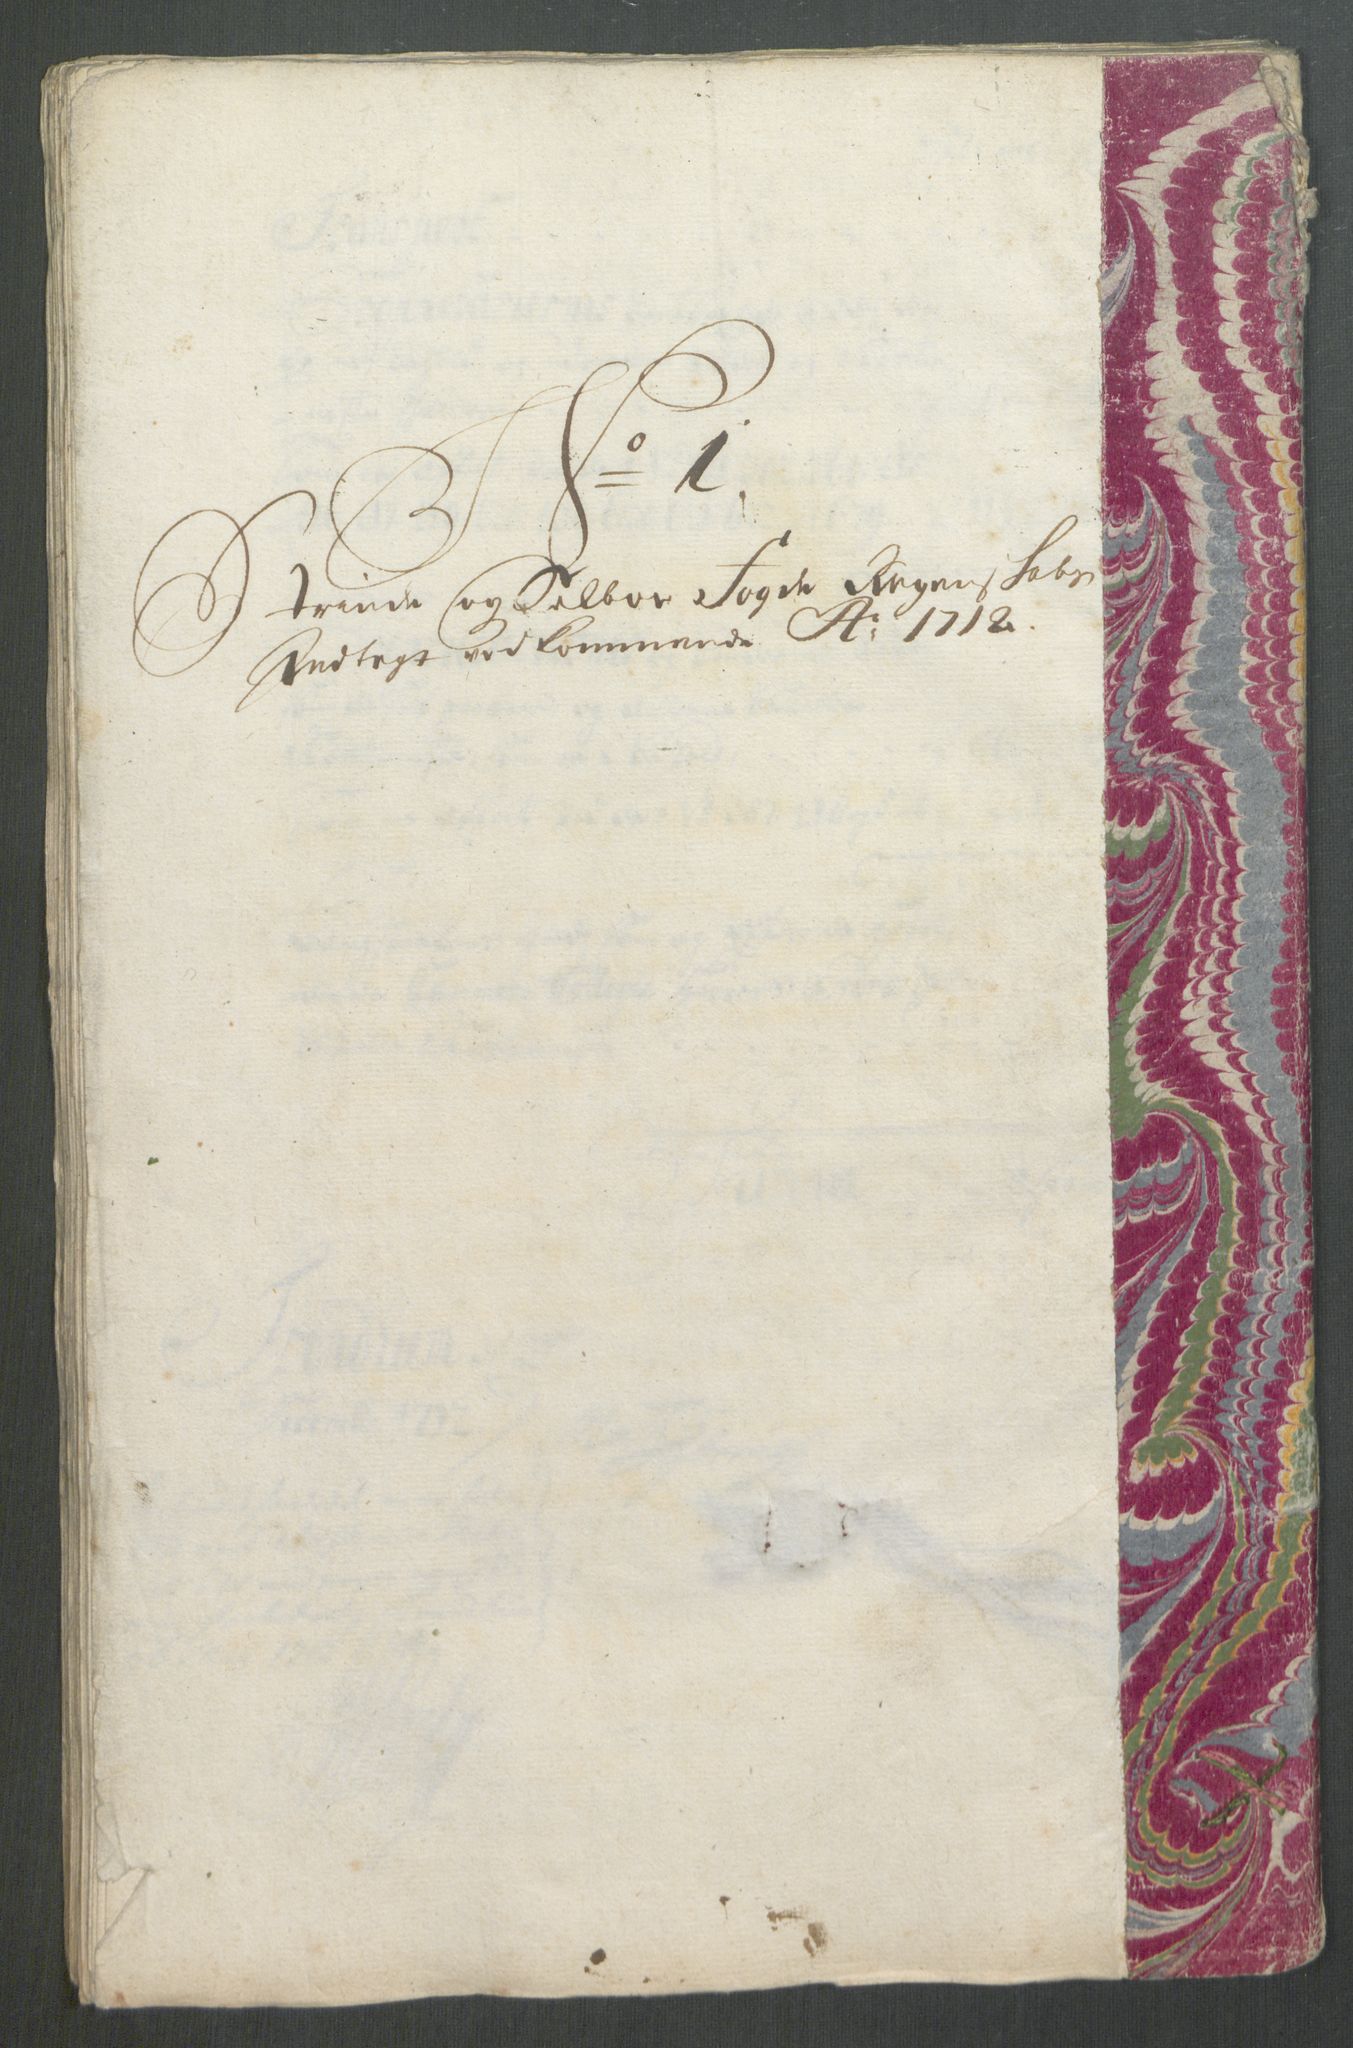 No 1.
Strinde og Selboe Fogde Regenskabs
Indtegt vedkommende Ao: 1712.